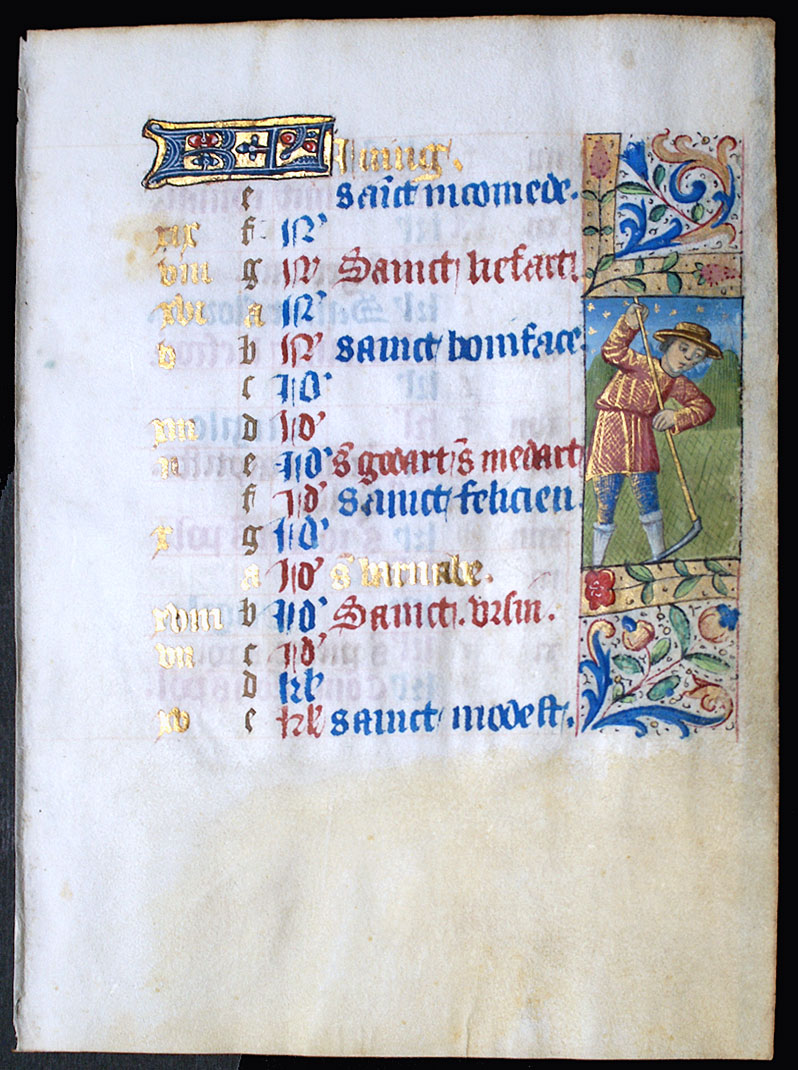 KL Juing.
e sainct nicomede.
xix f N'
viii g N' Sainct liefart.
xvi a N'
v b N' sainct boniface.
c id'
xiii d id'
ii e id' s̃ godart s̃ medart
f id' sainct felicien.
x g id'
a id' s̃ barnabe.
xviii b id' Sainct. vrsin.
vii c id'
d kl'
xv e kl sainct modest.